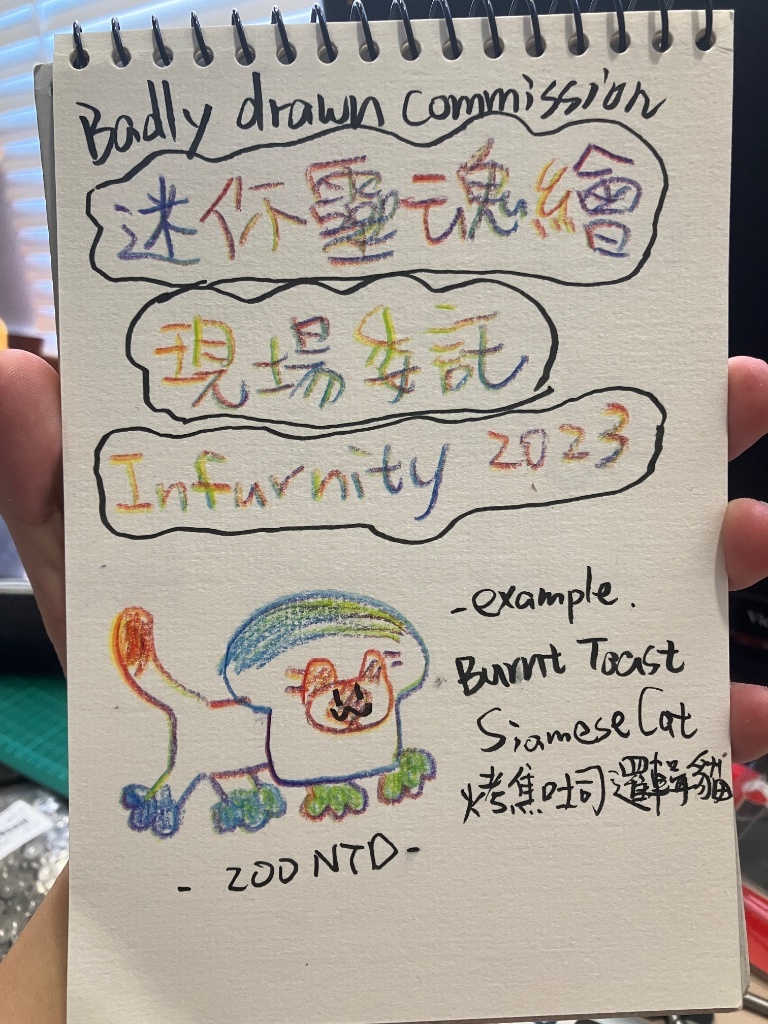 Badly drawn commission
迷你靈魂繪
現場委託
Infurnity 2023
-example.
Burnt Toast
Siamese Cat
烤焦吐司暹羅貓
- 200 NTD-